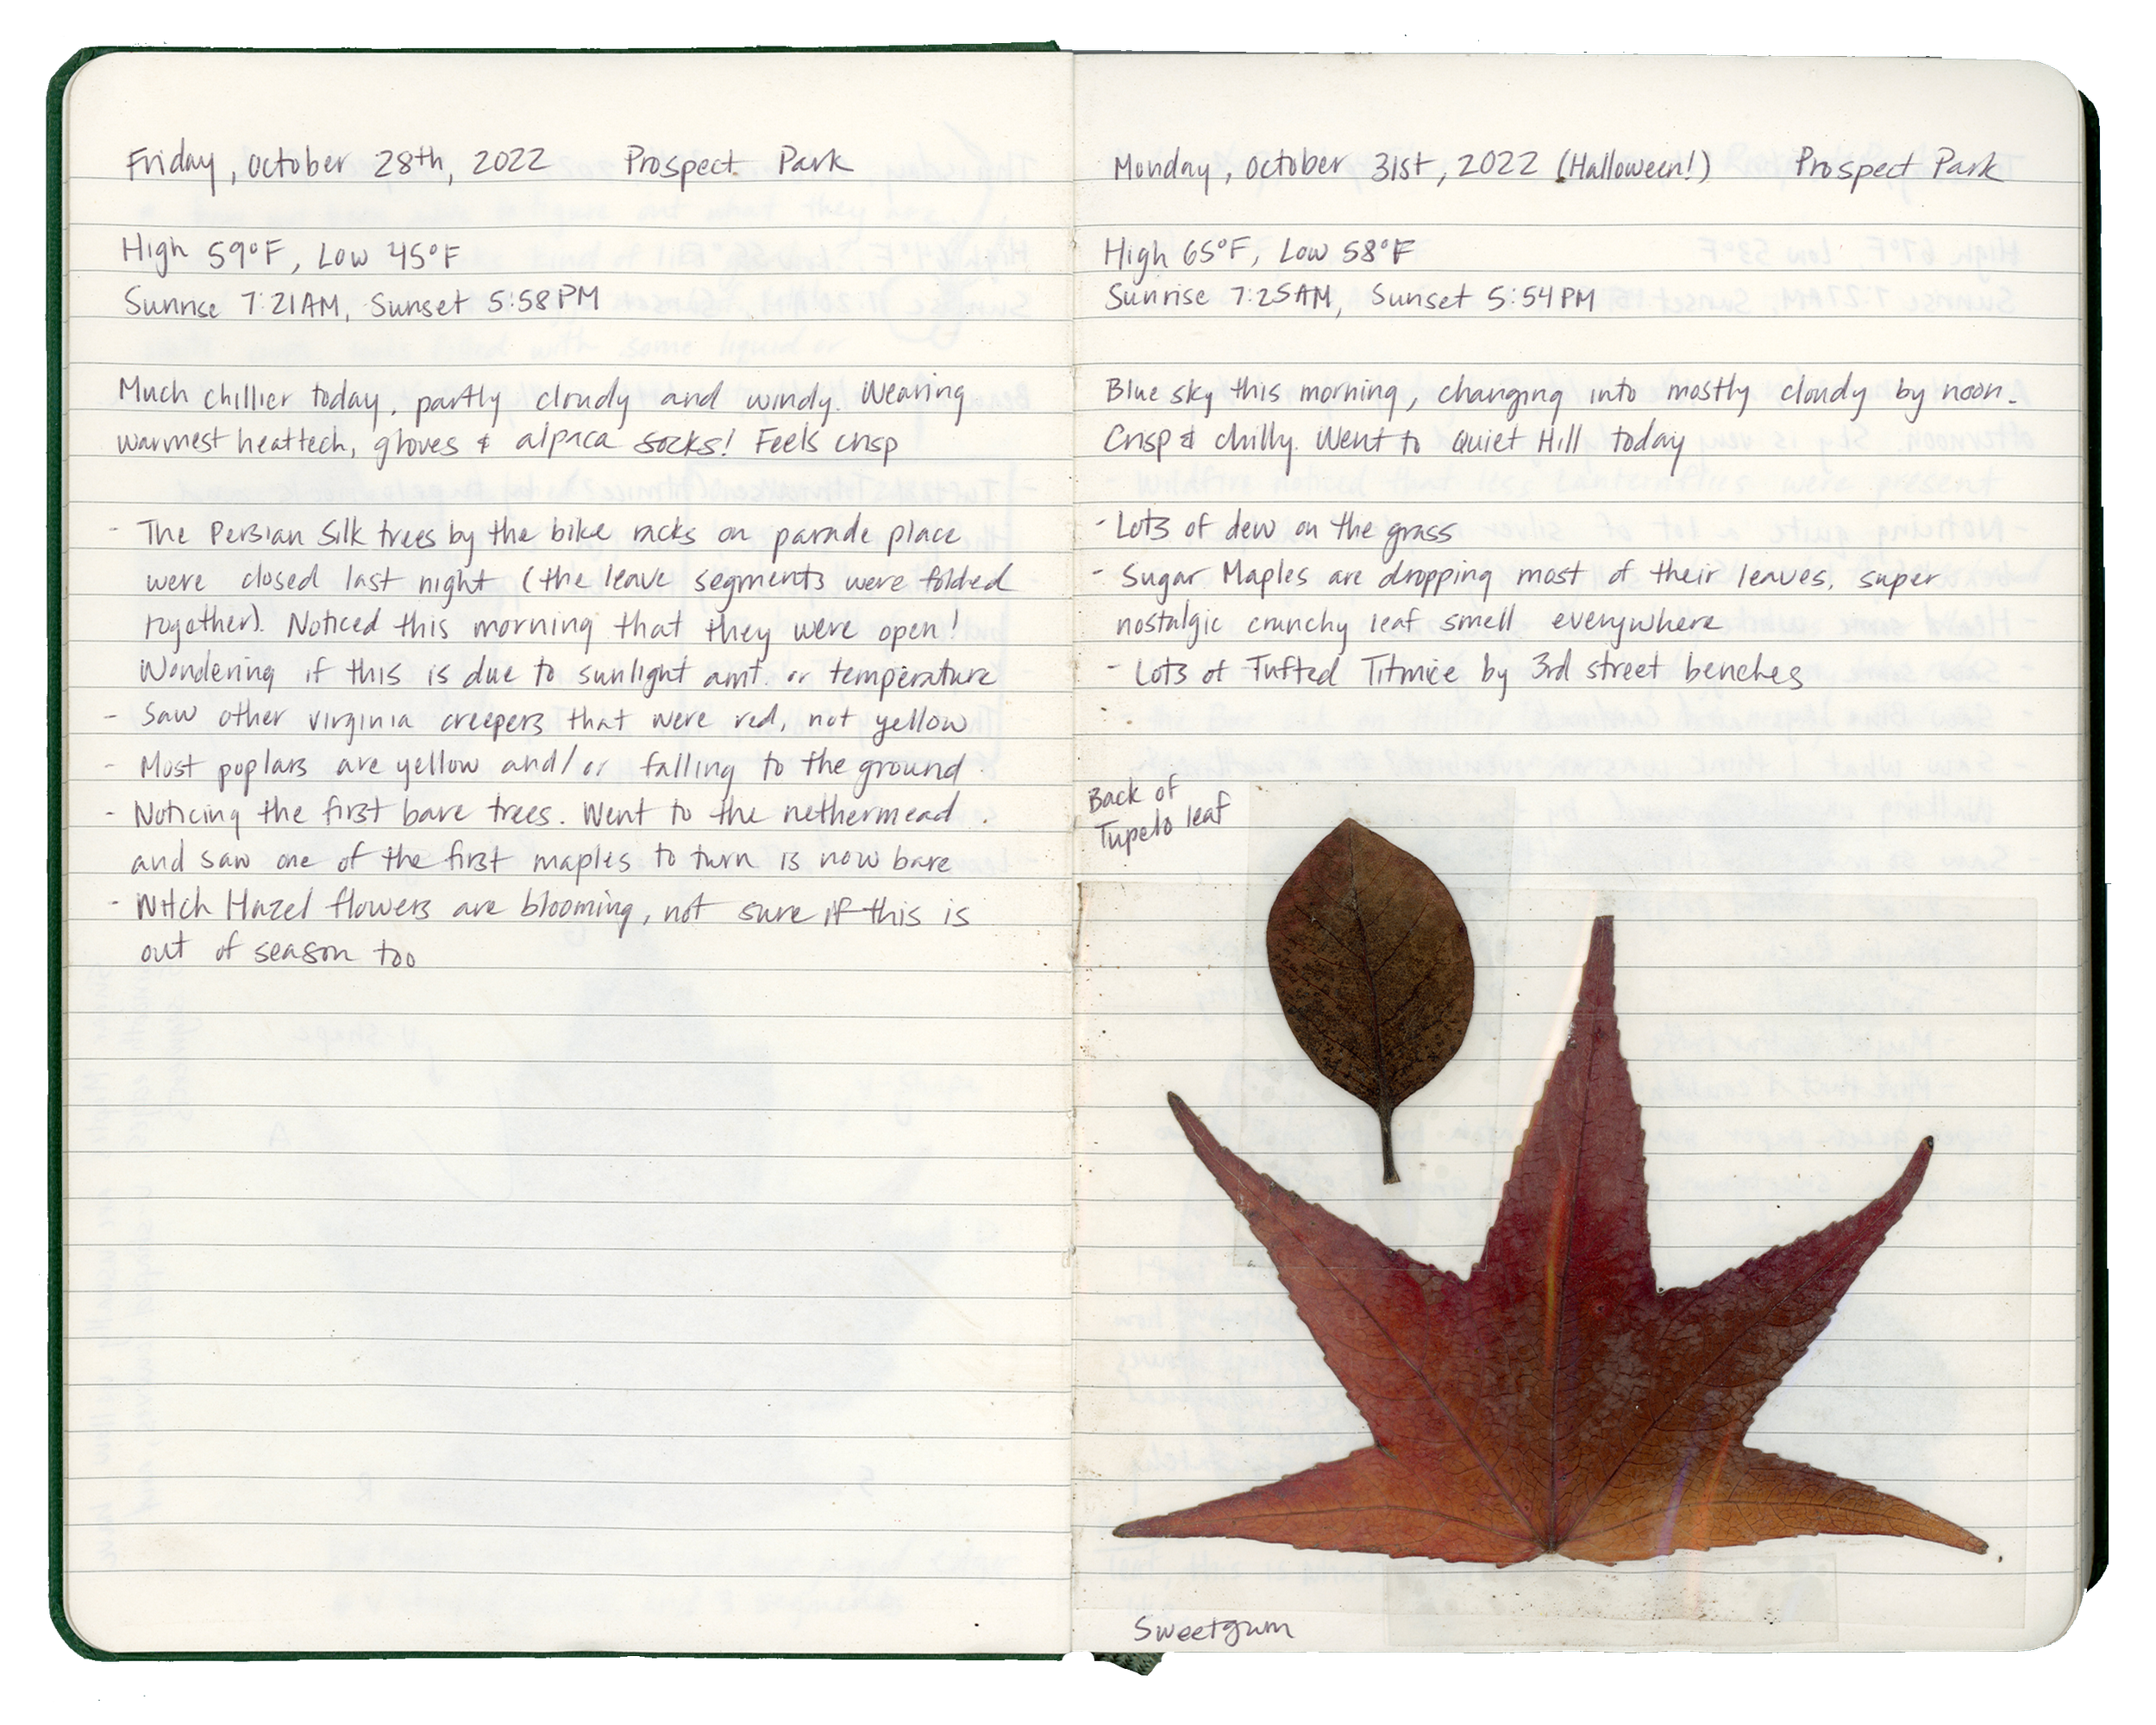 Friday, October 28th, 2022 Prospect Park
High 59°F, Low 45°F
Sunrise 7:21AM, Sunset 5:58PM
Much chillier today, partly cloudy and windy. Wearing
warmest heattech, gloves & alpaca socks! Feels crisp
- The Persian Silk trees by the bike racks on parade place
were closed last night (the leave segments were folded
together). Noticed this morning that they were open!
Wondering if this is due to sunlight amt. or temperature
- Saw other virginia creepers that were red, not yellow
- Most poplars are yellow and/or falling to the ground
- Noticing the first bare trees. Went to the nethermead
and saw one of the first maples to turn is now bare
- Witch Hazel flowers are blooming, not sure if this is
out of season too
Monday, October 31st, 2022 (Halloween!) Prospect Park
High 65°F, Low 58°F
Sunrise 7:25AM, Sunset 5:54PM
Blue sky this morning, changing into mostly cloudy by noon.
Crisp & chilly. Went to Quiet Hill today
- Lots of dew on the grass
- Sugar Maples are dropping most of their leaves, super
nostalgic crunchy leaf smell everywhere
- Lots of Tufted Titmice by 3rd street benches
Back of
Tupelo leaf
Sweetgum